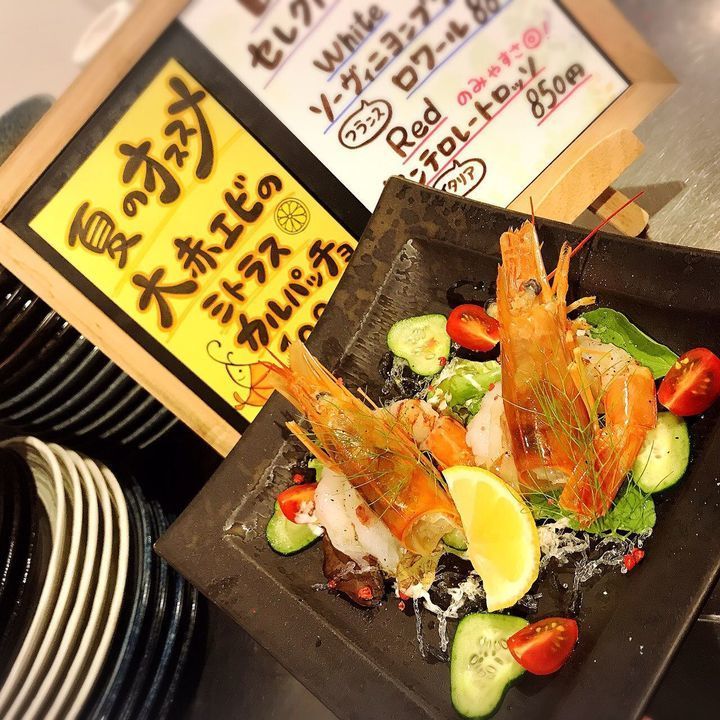 夏のオススメ
大赤エビの
ミトラス
カルパッチョ
セレクト
White
ソーヴィニヨンブラン
ロワール
フランス
Red のみやすさ◎!
ンテロレートロッソ
イタリア
850円